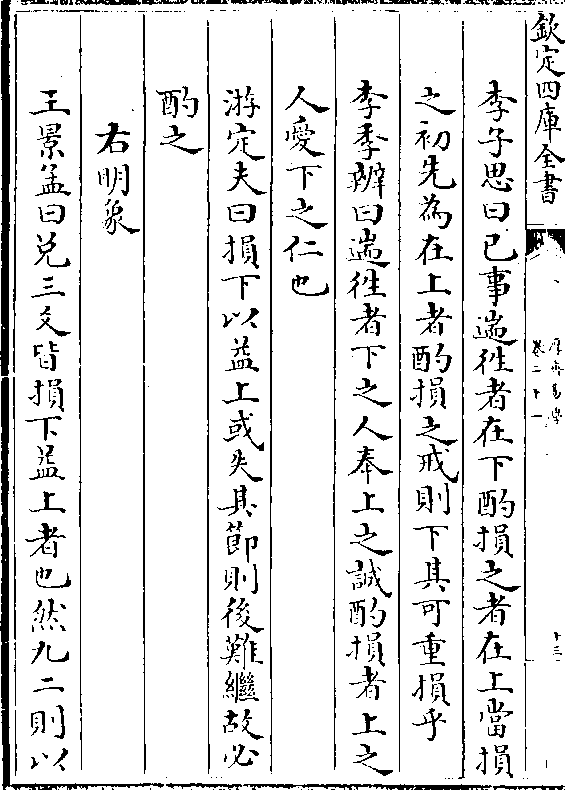 欽定四庫全書
厚齋易學
卷二十一
十三
李子思曰已事遄徃者在下酌損之者在上當損
之初先為在上者酌損之戒則下其可重損乎
李季辦曰遄徃者下之人奉上之誠酌損者上之
人愛下之仁也
游定夫曰損下以益上或失其節則後難繼故必
酌之
右明象
王景孟曰兑三爻皆損下益上者也然九二則以